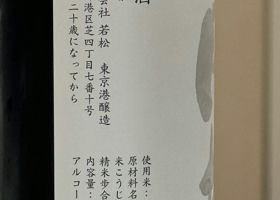 酒
会社 若松 東京港醸造
港区芝四丁目七番十号
二十歳になってから
使用米:
原材料名
米こうじ
精米歩合
内容量:
アルコー